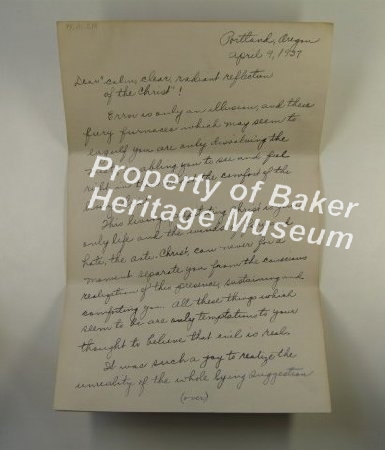 Portland, Oregon
April 9, 1937
Dear "calm, clear, radiant reflection
of the Christ"!
Error is only an illusion, and these
fiery furnaces which may seem to
engulf you are only dissolving the
enabling you to see and feel
the comfort of the
This living
only life and the
hate, the anti-Christ, can never for a
moment separate you from the conscious
realization of this presence, sustaining and
comforting you. All these things which
seem to be are only temptations to your
thought to believe that evil is real.
It was such a joy to realize the
unreality of the whole lying suggestion
(over)
Property of Baker
Heritage Museum